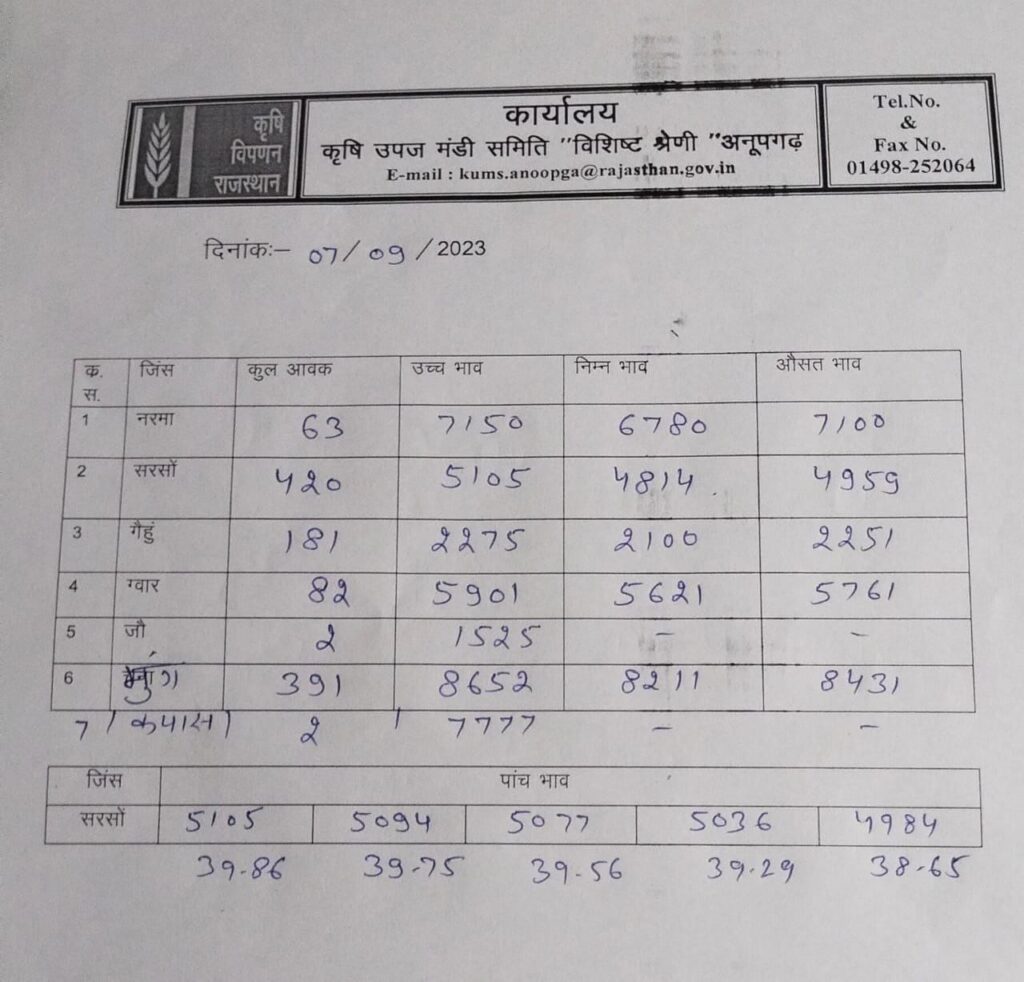 कृषि
विपणन
राजस्थान
कार्यालय
कृषि उपज मंडी समिति "विशिष्ट श्रेणी "अनूपगढ़
E-mail : kums.anoopga@rajasthan.gov.in
Tel.No.
&
Fax No.
01498-252064
दिनांकः– 07/09/2023
क. स. जिंस कुल आवक उच्च भाव निम्न भाव औसत भाव
1 नरमा 63 7150 6780 7100
2 सरसों 420 5105 4814 4959
3 गैहुं 181 2275 2100 2251
4 ग्वार 82 5901 5621 5761
5 जौ 2 1525 – –
6 मुंग 391 8652 8211 8431
7 कपास 2 7777 – –
जिंस पांच भाव
सरसों 5105 5094 5077 5036 4984
39.86 39.75 39.56 39.29 38.65